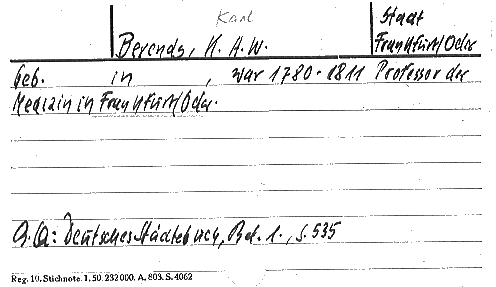 Karl
Stadt
Berends, K. A. W. Frankfurt/Oder
Geb. in , war 1780-1811 Professor der
Medizin in Frankfurt/Oder.
G. Q.: Deutsches Städtebuch, Bd. 1., S. 535
Reg. 10. Stichnote. 1. 50. 232000. A. 803. S. 4062